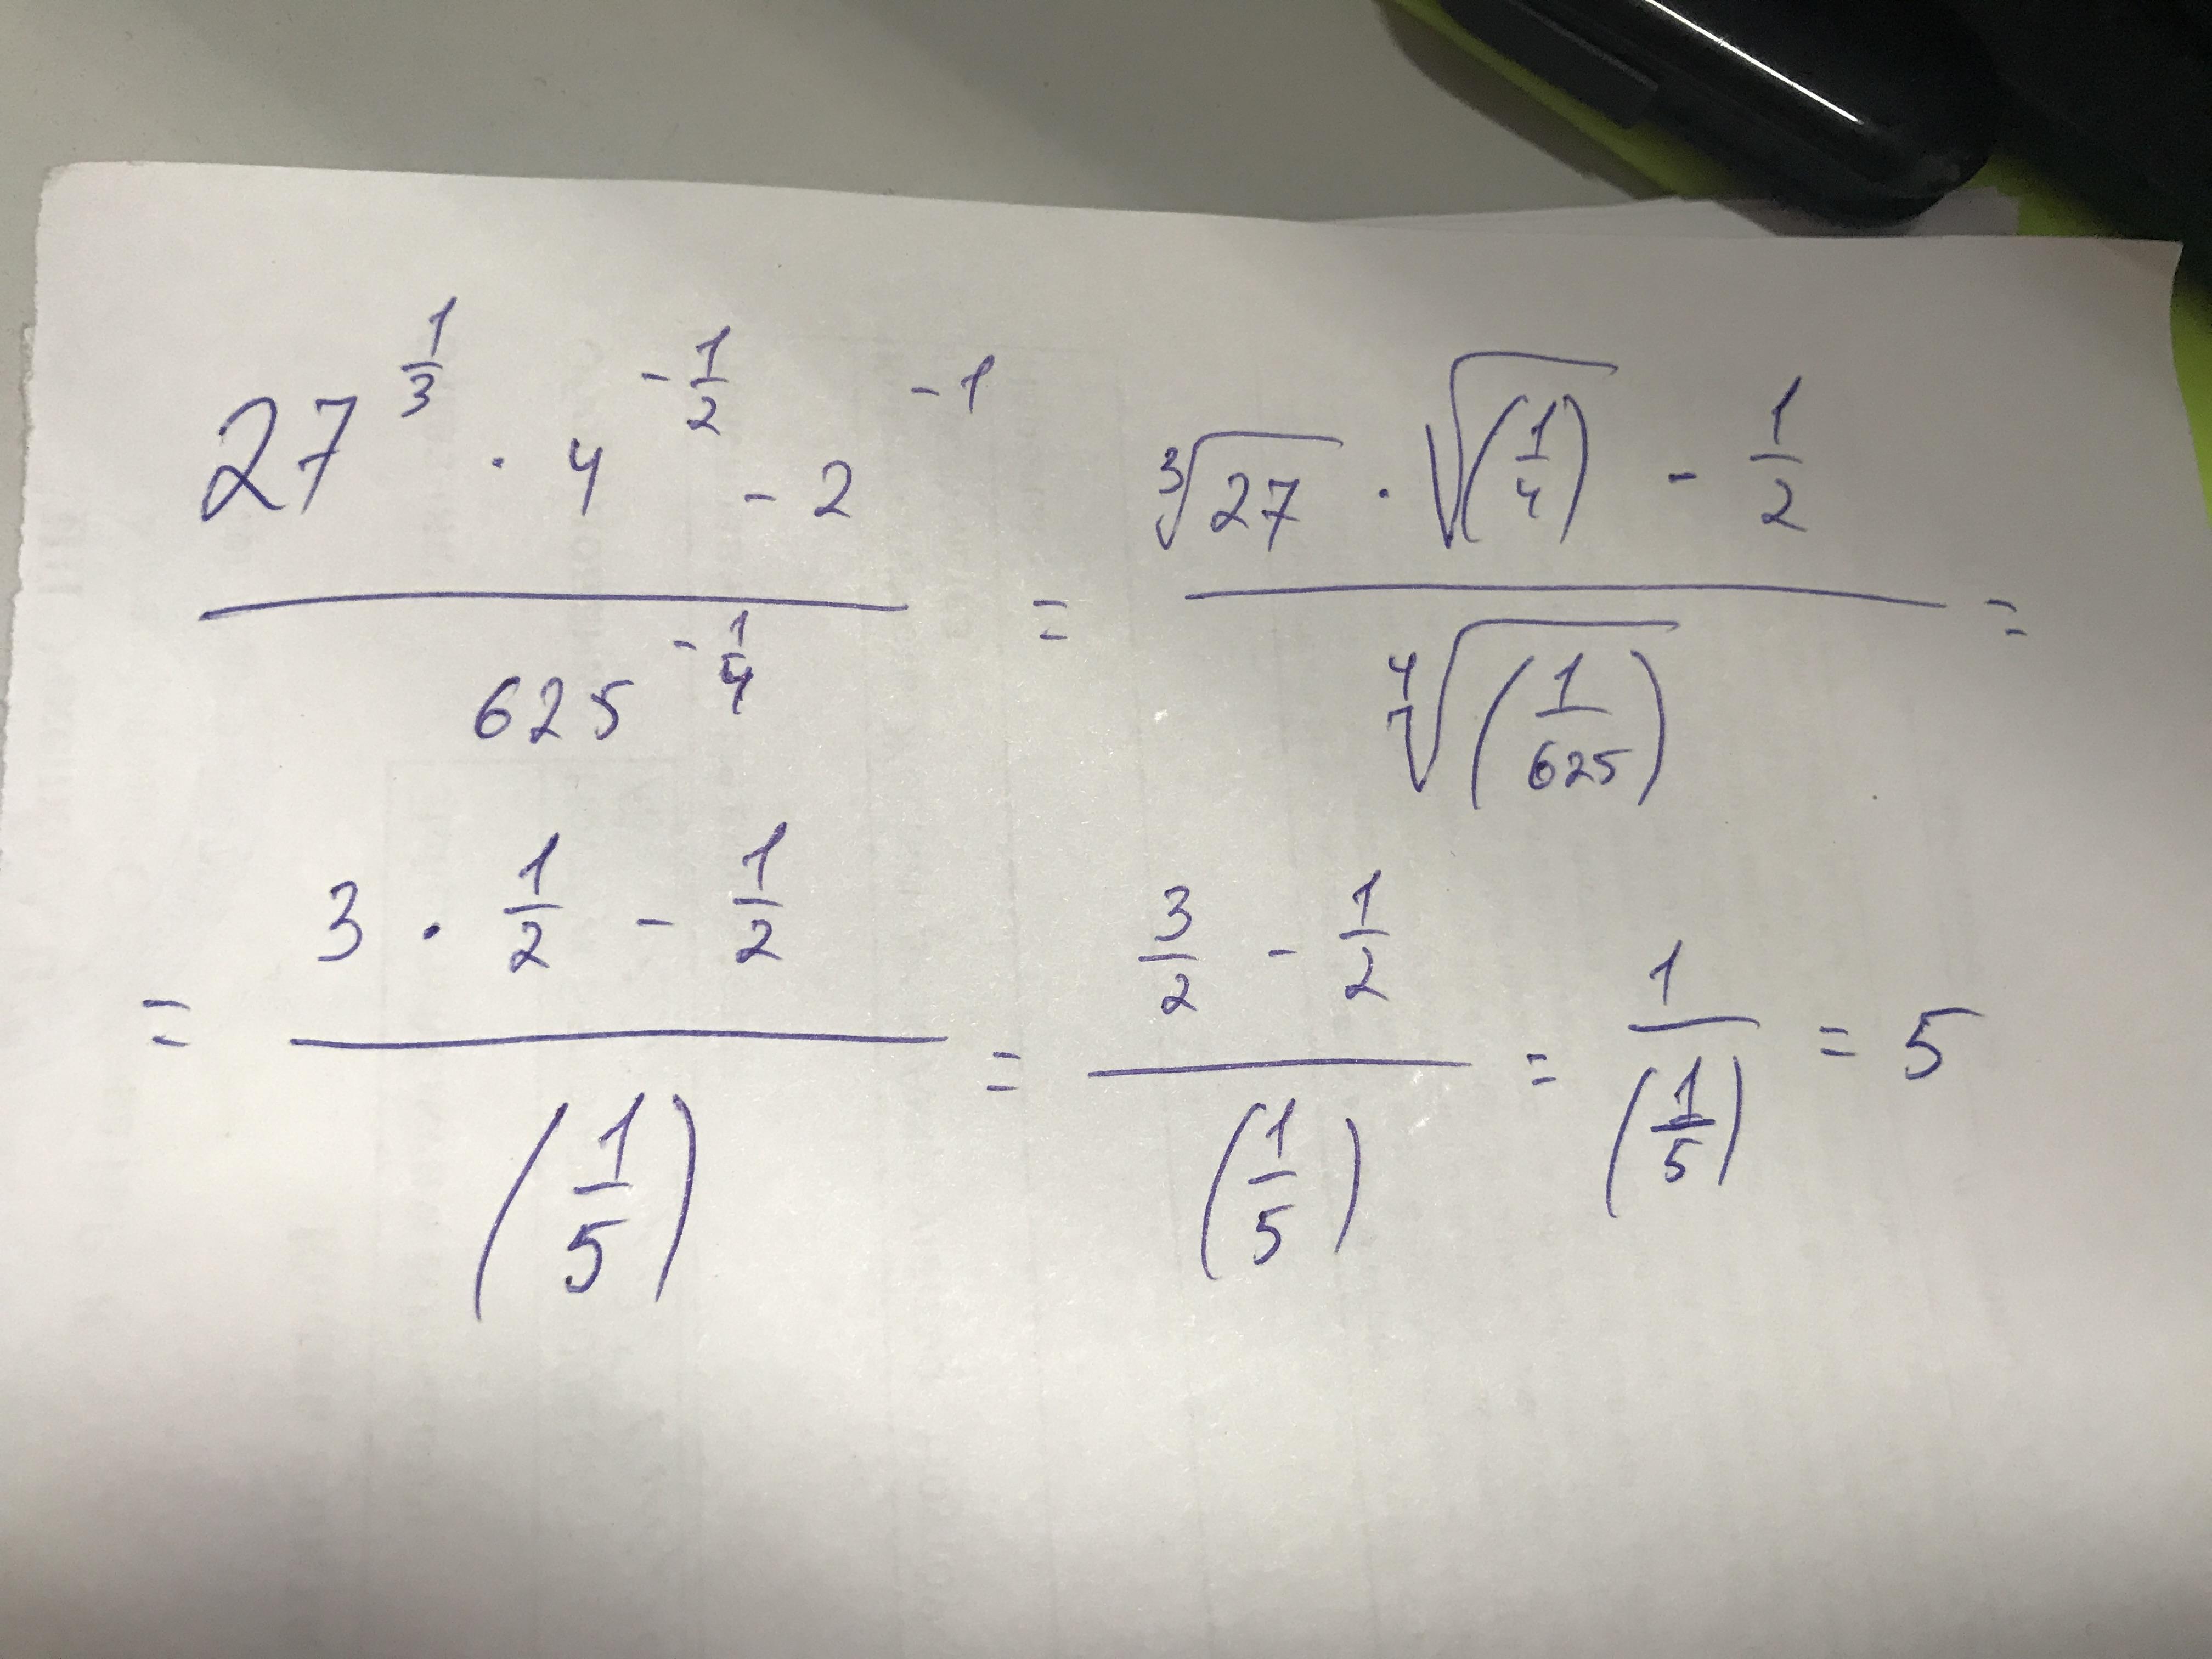 \frac{27^{\frac{1}{3}} \cdot 4^{-\frac{1}{2}} - 2^{-1}}{625^{-\frac{1}{4}}} = \frac{\sqrt[3]{27} \cdot \sqrt{\left(\frac{1}{4}\right)} - \frac{1}{2}}{\sqrt[4]{\left(\frac{1}{625}\right)}} =
= \frac{3 \cdot \frac{1}{2} - \frac{1}{2}}{\left(\frac{1}{5}\right)} = \frac{\frac{3}{2} - \frac{1}{2}}{\left(\frac{1}{5}\right)} = \frac{1}{\left(\frac{1}{5}\right)} = 5